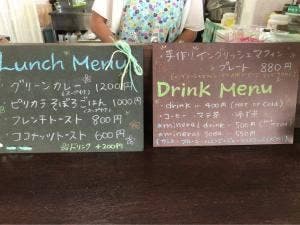 Lunch Menu
グリーンカレー 1200円
ピリカラそぼろごはん 1000円
フレンチトースト 800円
ココナッツトースト 600円
ドリンク +200円
・手作りイングリッシュマフィン
プレート 880円
Drink Menu
・drink 400円 (Hot or Cold)
・コーヒー ・マテ茶 ・ゆず
mineral drink 500円
mineral soda 550円